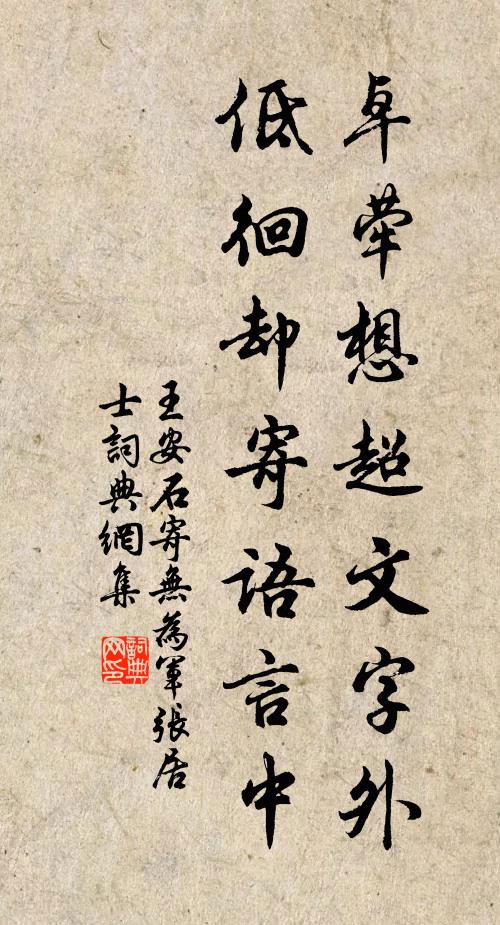 卓犖想超文字外
低徊却寄語言中
王安石寄無為軍張居
士詞典網集
詞典
网印